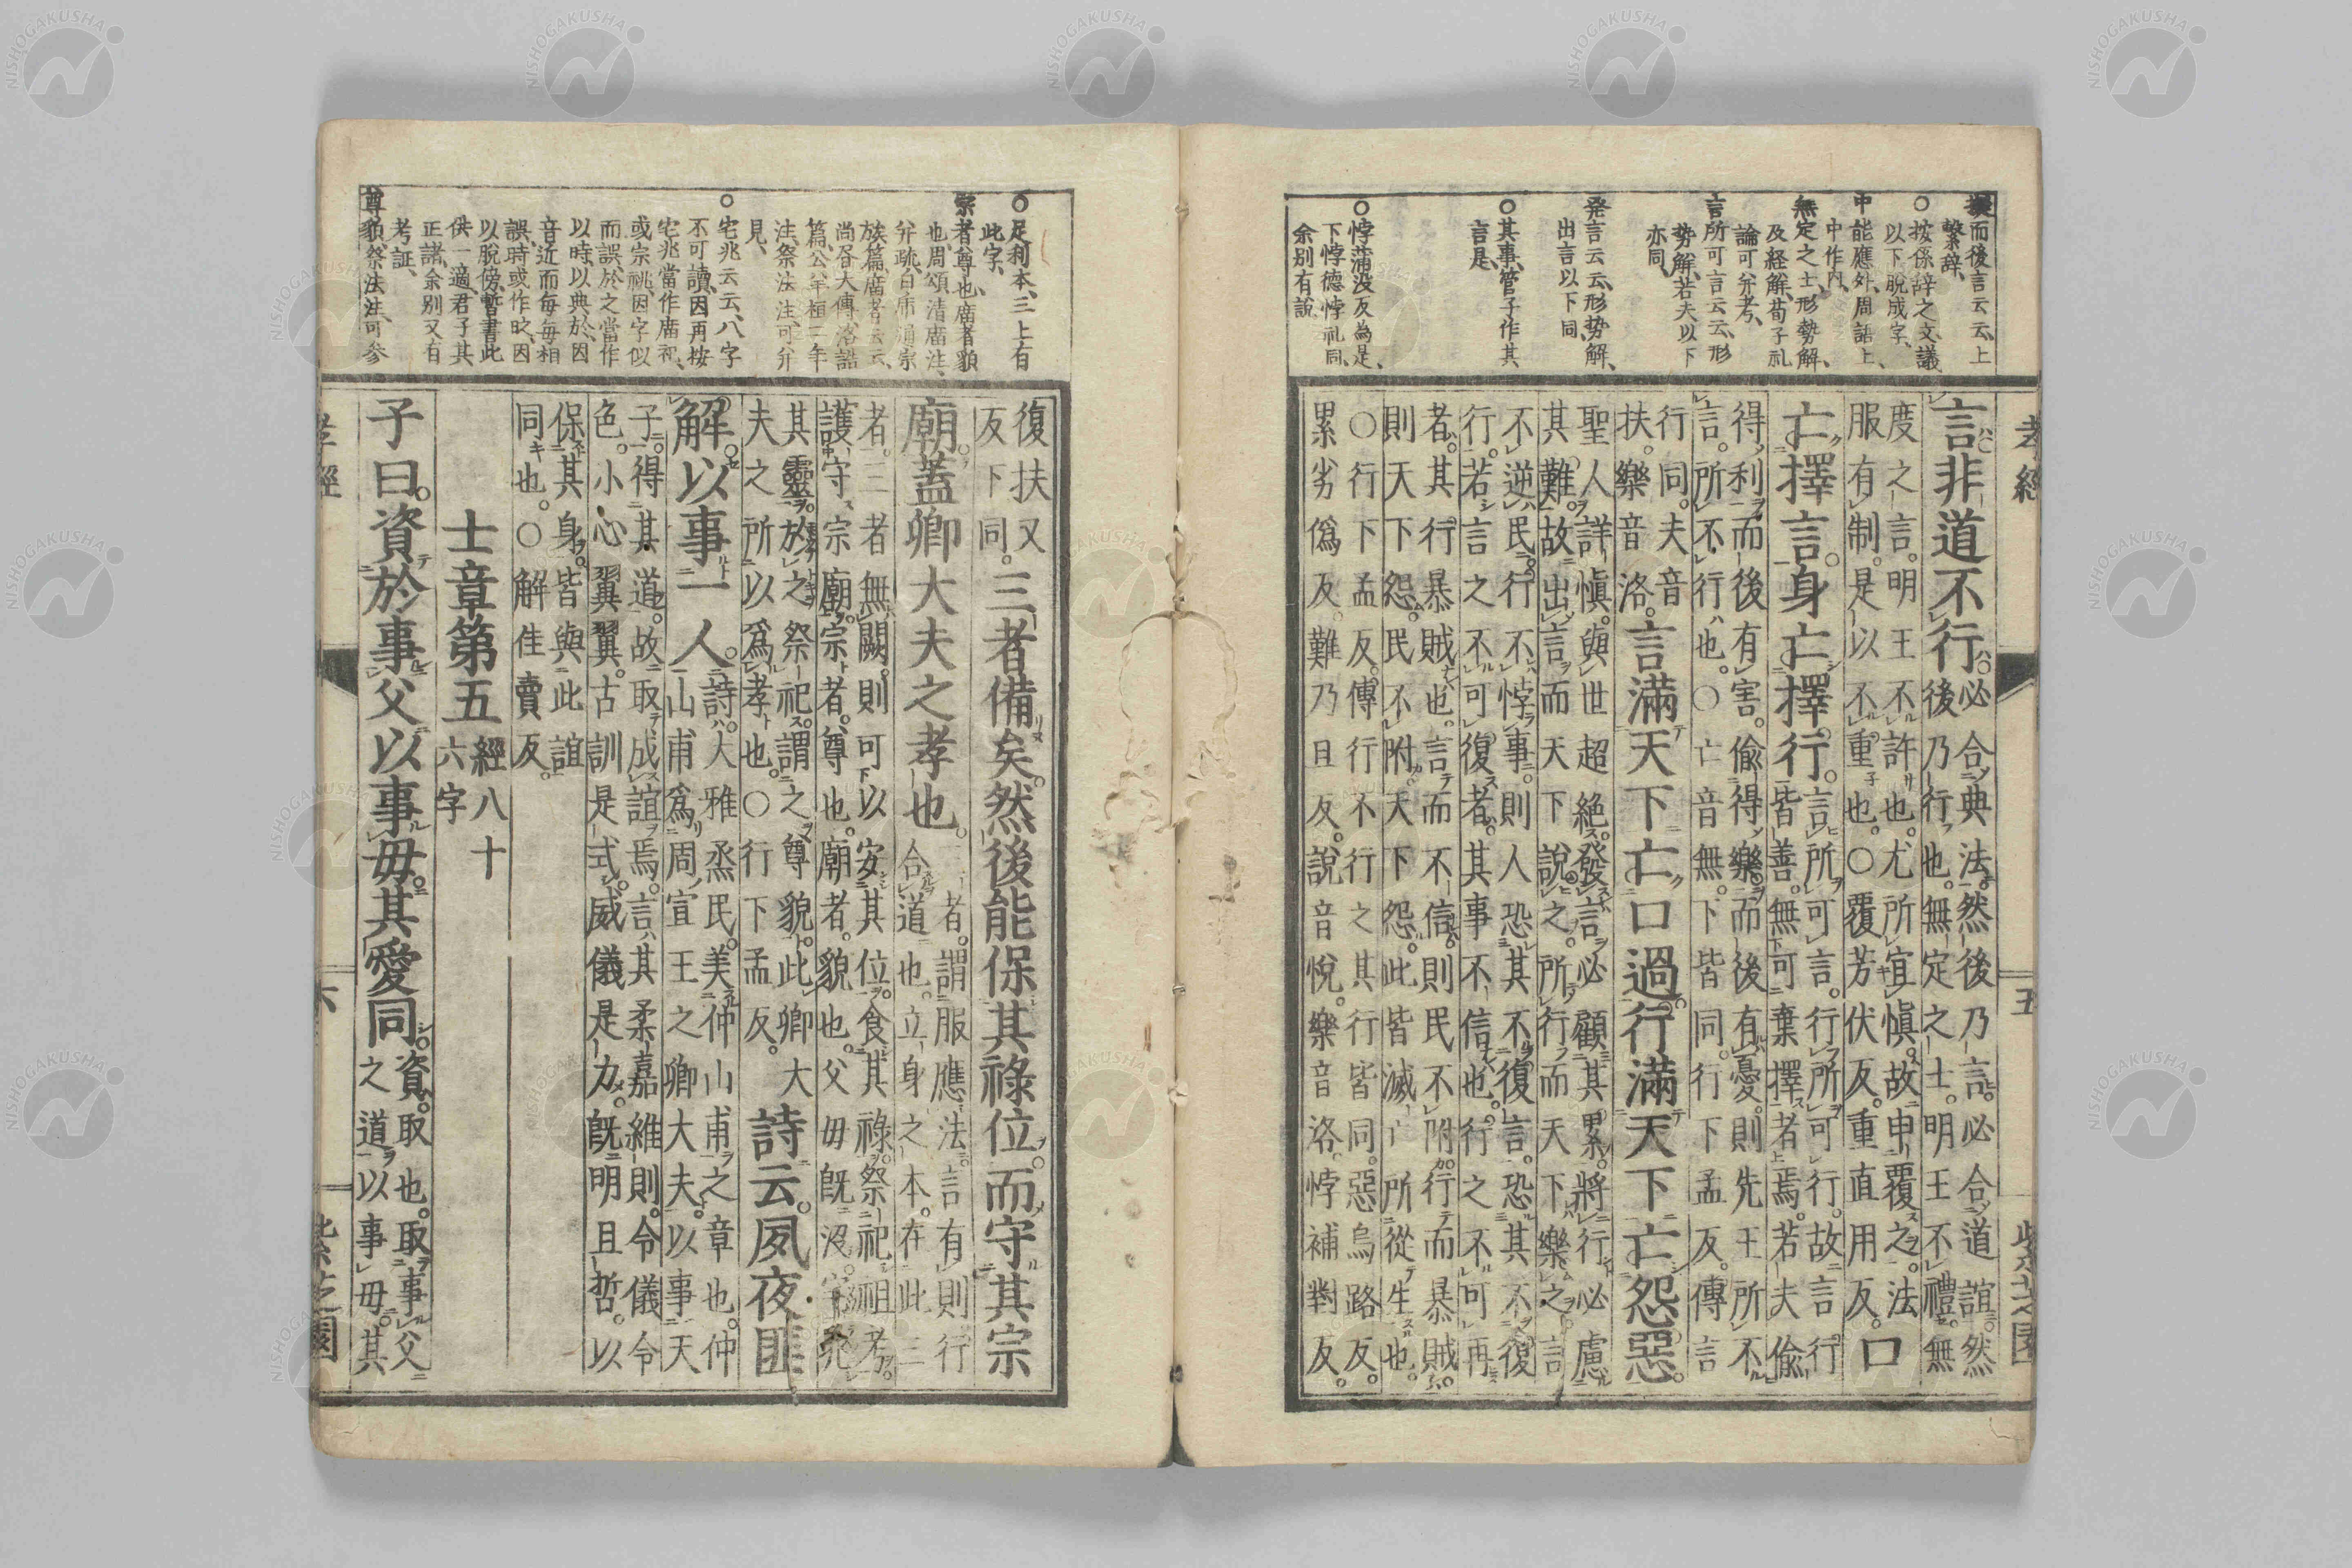 擬而後言云云、上
繫辞、
○按係辞之文、議
以下脫成字、
中能應外、周語上、
中作内、
無定之士、形勢解、
及経解、荀子礼
論可幷考、
言所可言云云、形
勢解、若夫以下
亦同、
発言云云、形势解、
出言以下同、
○其事、管子作其
言是、
○悖蒲没反為是、
下悖德悖礼同、
余別有說
孝經 五 紫芝園
言非道不行。
必合典法。然後乃言。必合道誼。然
後乃行也。無定之士。明王不禮。無
度之言。明王不許也。尤所宜慎。故申覆之。法
服有制。是以不重也。○覆芳伏反。重直用反。
口
亡擇言。身亡擇行。
言所可言。行所可行。故言行
皆善。無可棄擇者焉。若夫偷
得利而後有害。偷得樂而後有憂。則先王所不
言。所不行也。○亡音無。下皆同。行下孟反。傳言
行同。夫音
扶。樂音洛。
言滿天下亡口過。行滿天下亡怨惡。
聖人詳慎。與世超絕。發言必顧其累。將行必慮
其難。故出言而天下說之。所行而天下樂之。言
不逆民。行不悖事。則人恐其不復言。恐其不復
行。若言之不可復者。其事不信也。行之不可再
者。其行暴賊也。言而不信。則民不附。行而暴賊。
則天下怨。民不附。天下怨。此皆滅亡所從生也。
○行下孟反。傳行不行之其行皆同。惡烏路反。
累劣僞反。難乃旦反。說音悅。樂音洛。悖補對反。
○足利本、三上有
此字、
宗者尊也廟者貌
也、周頌清廟注、
幷疏、白虎通宗
族篇、廟者云云、
尚各大傳、洛誥
篇、公羊桓二年
注、祭法注、可幷
見、
○宅兆云云、八字
不可讀、因再按
宅兆當作廟祀、
或宗祧、因字似
而誤、於之當作
以時以典於、因
音近而每每相
誤、時或作旼、因
以脫傍、暫書此
供一適、君子其
正諸、余別又有
考証、
尊貌、祭法注、可参
復扶又
反下同。
三者備矣。然後能保其祿位。而守其宗
廟。蓋卿大夫之孝也。
三者。謂服應法。言有則。行
合道也。立身之本。在此三
者。三者無闕。則可以安其位。食其祿。祭祀祖考。
護守宗廟。宗者。尊也。廟者。貌也。父母旣沒。宅兆
其靈。於之祭祀。謂之尊貌。此卿大
夫之所以爲孝也。○行下孟反。
詩云。夙夜匪
解。以事一人。
詩。大雅烝民。美仲山甫之章也。仲
山甫爲周宣王之卿大夫。以事天
子。得其道。故取成誼焉。言其柔嘉維則。令儀令
色。小心翼翼。古訓是式。威儀是力。旣明且哲。以
保其身。皆與此誼
同也。○解佳賣反。
士章第五
經八十
六字
子曰。資於事父以事母。其愛同。
資。取也。取事父
之道以事母。其
孝經 六 紫芝園
NISHOGAKUSHA